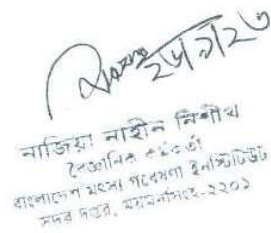 ২৬/৯/২৩
নাজিয়া নাহীন নিশীথ
বৈজ্ঞানিক কর্মকর্তা
বাংলাদেশ মৎস্য গবেষণা ইনস্টিটিউট
সদর দপ্তর, ময়মনসিংহ-২২০১